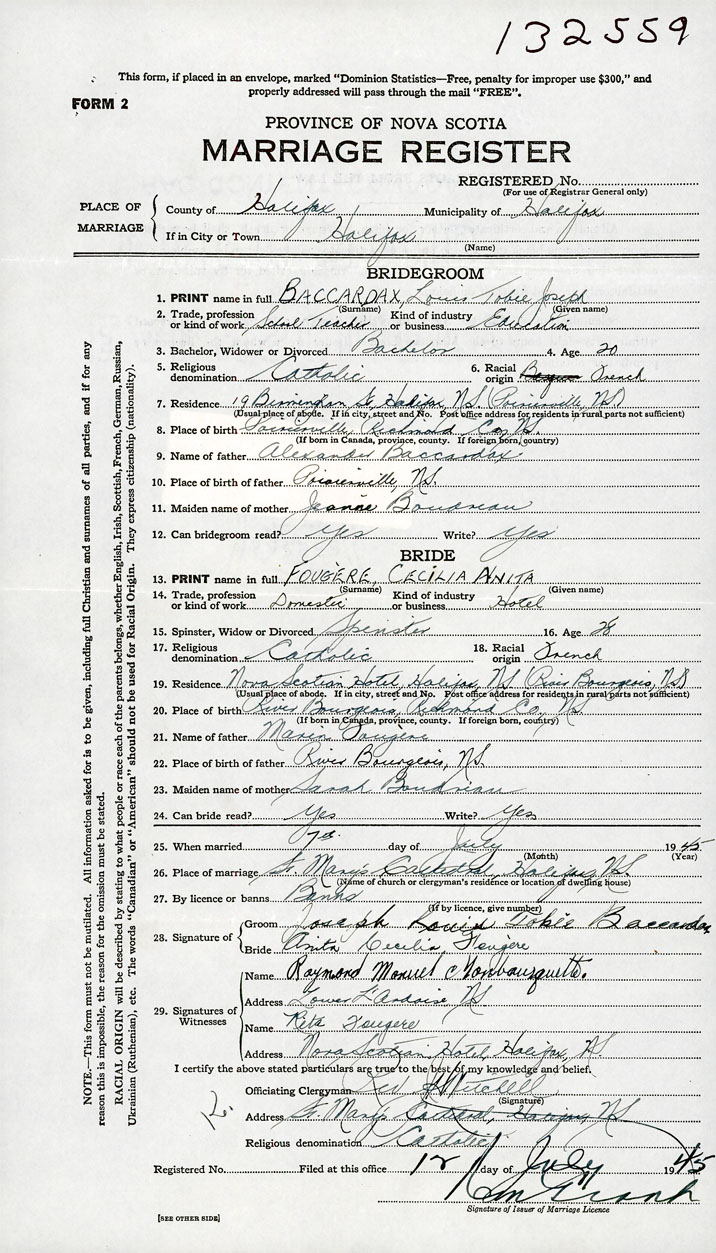 132559
This form, if placed in an envelope, marked "Dominion Statistics—Free, penalty for improper use $300," and
properly addressed will pass through the mail "FREE".
FORM 2
PROVINCE OF NOVA SCOTIA
MARRIAGE REGISTER
REGISTERED No.
(For use of Registrar General only)
PLACE OF MARRIAGE
County of Halifax Municipality of Halifax
If in City or Town Halifax
(Name)
BRIDEGROOM
1. PRINT name in full BACCARDAX, Louis Tobie Joseph
(Surname) (Given name)
2. Trade, profession or kind of work School Teacher Kind of industry or business Education
3. Bachelor, Widower or Divorced Bachelor 4. Age 20
5. Religious denomination Catholic 6. Racial origin French
7. Residence 19 Birmingham St, Halifax, N.S. (Poirierville, N.S.)
(Usual place of abode. If in city, street and No. Post office address for residents in rural parts not sufficient)
8. Place of birth Poirierville, Richmond Co, N.S.
(If born in Canada, province, county. If foreign born, country)
9. Name of father Alexander Baccardax
10. Place of birth of father Poirierville, N.S.
11. Maiden name of mother Jeanne Boudreau
12. Can bridegroom read? Yes Write? Yes
BRIDE
13. PRINT name in full FOUGÈRE, CECILIA ANITA
(Surname) (Given name)
14. Trade, profession or kind of work Domestic Kind of industry or business Hotel
15. Spinster, Widow or Divorced Spinster 16. Age 28
17. Religious denomination Catholic 18. Racial origin French
19. Residence Nova Scotian Hotel, Halifax, N.S. (River Bourgeois, N.S)
(Usual place of abode. If in city, street and No. Post office address for residents in rural parts not sufficient)
20. Place of birth River Bourgeois, Richmond Co, N.S
(If born in Canada, province, county. If foreign born, country)
21. Name of father Fougère
22. Place of birth of father River Bourgeois, N.S.
23. Maiden name of mother Sarah Boudreau
24. Can bride read? Yes Write? Yes
25. When married 7th day of July 1945
(Month) (Year)
26. Place of marriage St. Mary's Cathedral, Halifax, N.S.
(Name of church or clergyman's residence or location of dwelling house)
27. By licence or banns Banns
(If by licence, give number)
28. Signature of
Groom Joseph Louis Tobie Baccardax
Bride Anita Cecilia Fougère
29. Signatures of Witnesses
Name Raymond Manuel Mombourquette.
Address Lower L'Ardoise NS
Name Rita Fougere
Address Nova Scotian Hotel, Halifax, N.S.
I certify the above stated particulars are true to the best of my knowledge and belief.
Officiating Clergyman Rev Mitchell
(Signature)
Address St. Mary's Cathedral, Halifax, N.S
Religious denomination Catholic
Registered No. Filed at this office 12 day of July 1945
Signature of Issuer of Marriage Licence
[SEE OTHER SIDE]
NOTE.—This form must not be mutilated. All information asked for is to be given, including full Christian and surnames of all parties, and if for any
reason this is impossible, the reason for the omission must be stated.
RACIAL ORIGIN will be described by stating to what people or race each of the parents belongs, whether English, Irish, Scottish, French, German, Russian,
Ukrainian (Ruthenian), etc. The words "Canadian" or "American" should not be used for Racial Origin. They express citizenship (nationality).